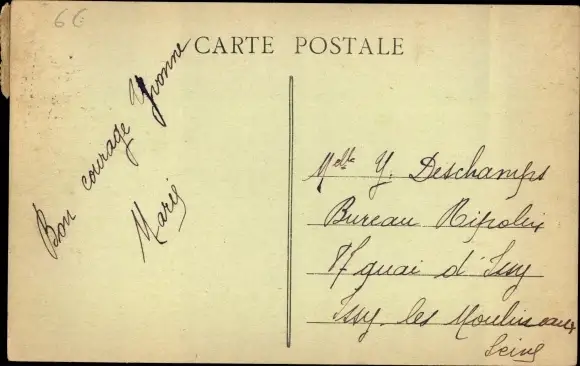 6€
CARTE POSTALE
Bon courage Yvonne
Marie
Melle Y. Deschamps
Bureau Ripolin
quai d'Issy
Issy les Moulineaux
Seine